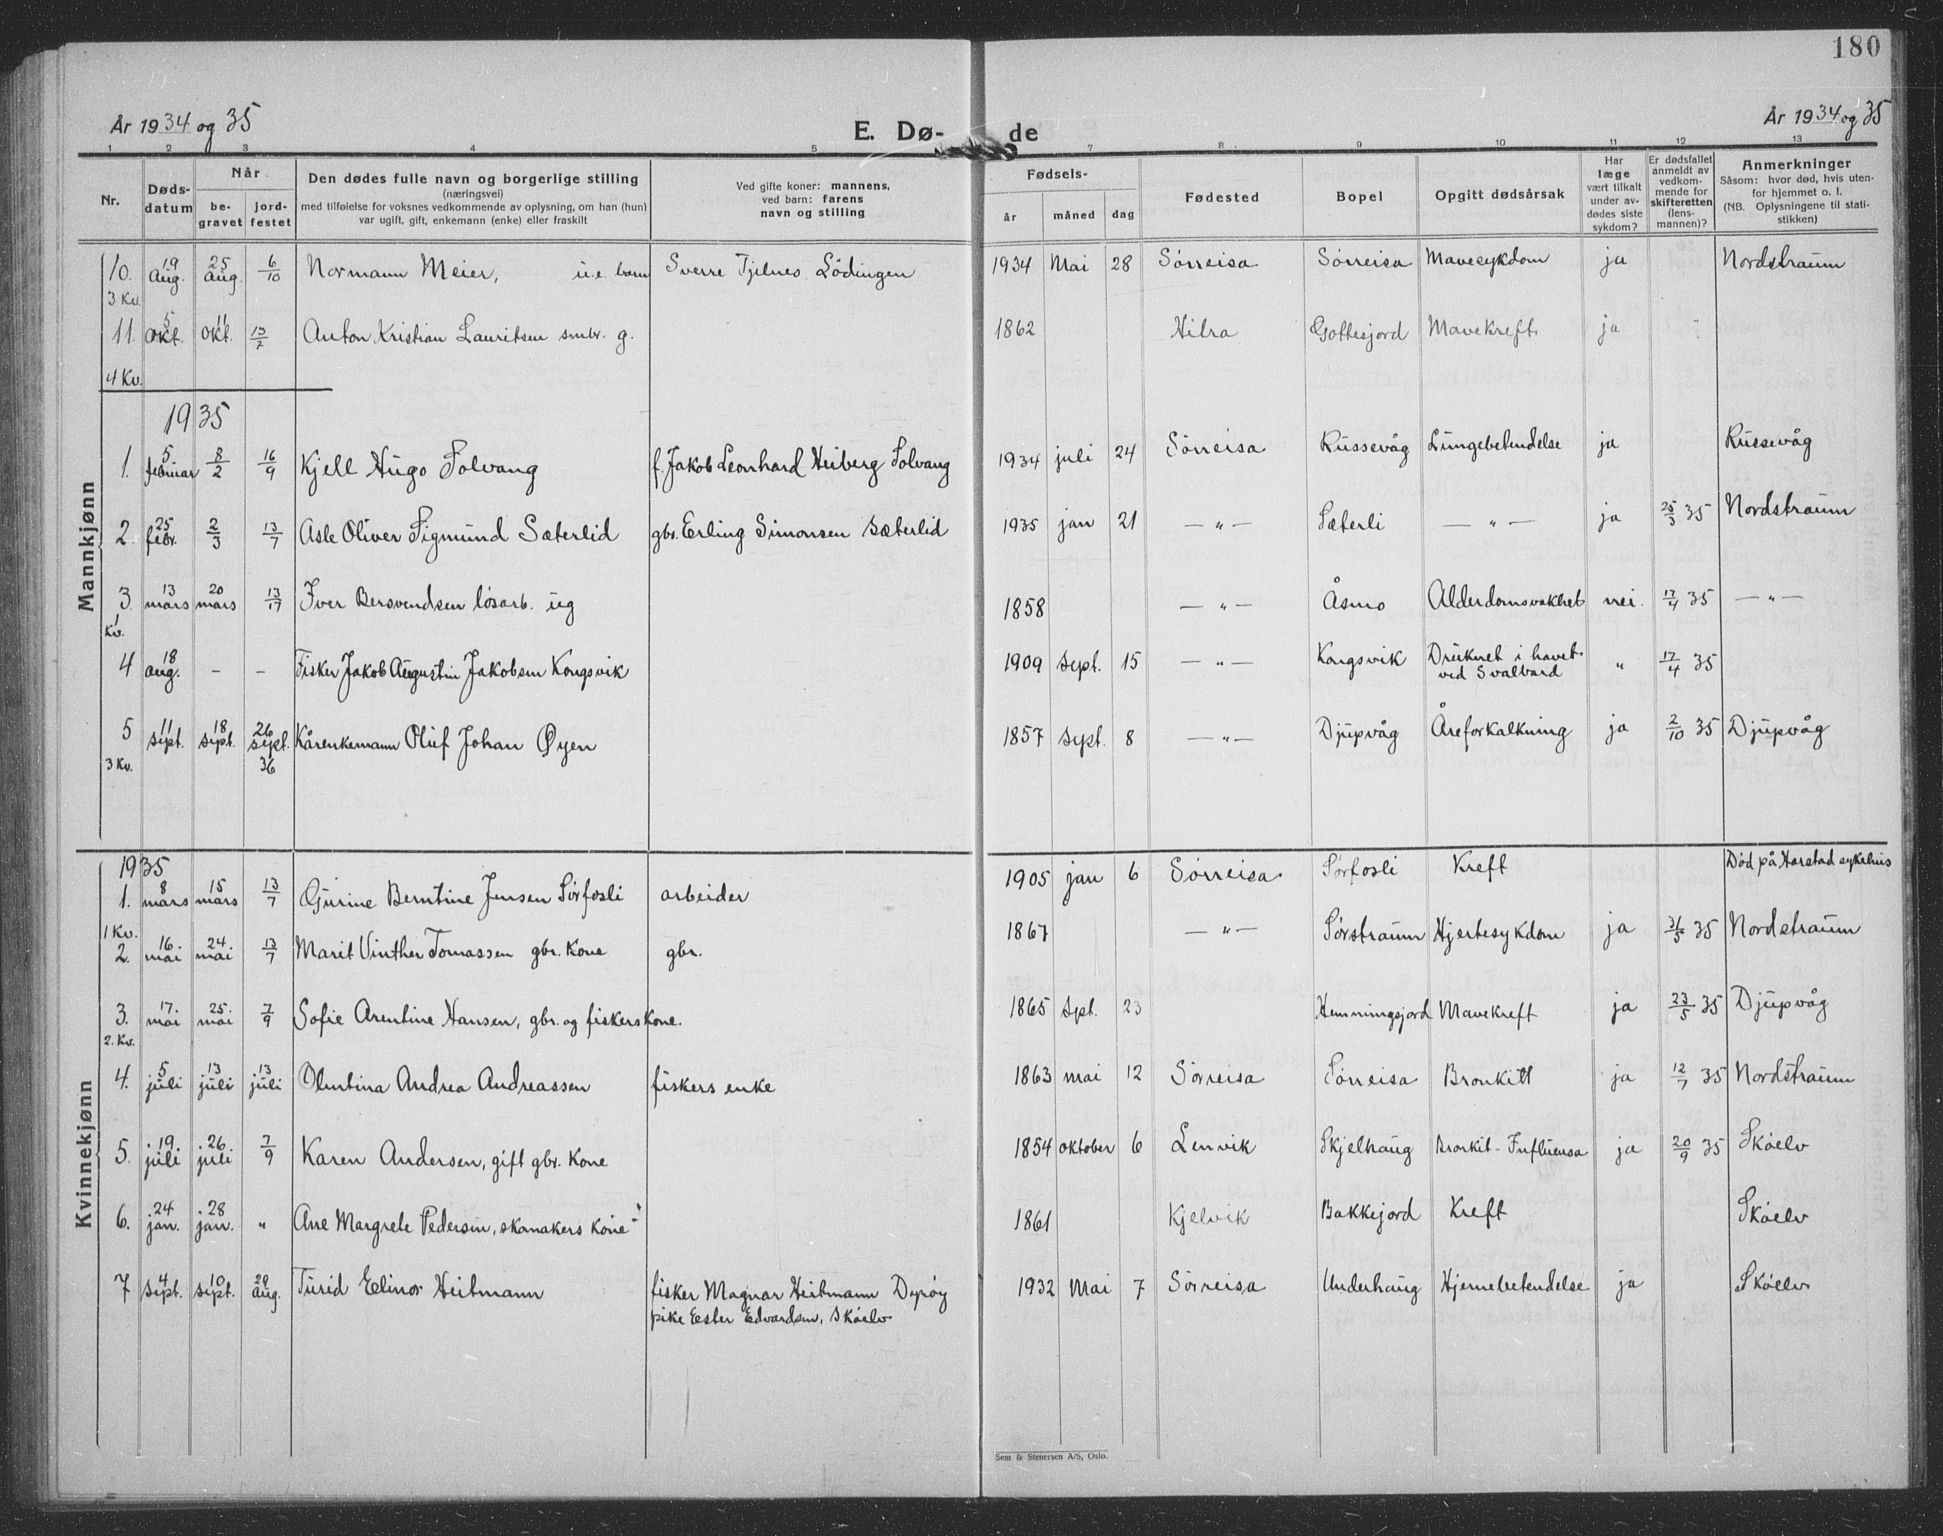 180
År 1934 og 35
E. Dø- de
År 1934 og 35
1 2 3 4 5 7 8 9 10 11 12 13
Nr.
Døds-
datum
Når
be-
gravet
jord-
festet
Den dødes fulle navn og borgerlige stilling
(næringsvei)
med tilføielse for voksnes vedkommende av oplysning, om han (hun)
var ugift, gift, enkemann (enke) eller fraskilt
Ved gifte koner: mannens,
ved barn: farens
navn og stilling
Fødsels-
år måned dag
Fødested
Bopel
Opgitt dødsårsak
Har
læge
vært tilkalt
under av-
dødes siste
sykdom?
Er dødsfallet
anmeldt av
vedkom-
mende for
skifteretten
(lens-
mannen)?
Anmerkninger
Såsom: hvor død, hvis uten-
for hjemmet o. l.
(NB. Oplysningene til stati-
stikken)
Mannkjønn
10. 19 Aug. 25 Aug. 6/10 Normann Meier, u.e. barn Sverre Tjelnes Lödingen 1934 Mai 28 Sörreisa Sörreisa Mavesykdom ja Nordstraum
3 Kv.
11. 5 Okt. 11 Okt. 13/7 Anton Kristian Lauritsen smbr. g. 1862 Hilra Gottesjord Mavekreft ja
4 Kv.
1935
1. 5 februar 8/2 16/9 Kjell Hugo Solvang f. Jakob Leonhard Heiberg Solvang 1934 juli 24 Sörreisa Russevåg Lungebetendelse ja Russevåg
2. 25 febr. 2/3 13/7 Asle Oliver Sigmund Sæterlid gbr. Erling Simonsen Sæterlid 1935 jan 21 — " — Sæterli — " — ja 25/3 35 Nordstraum
3. 13 mars 20 mars 13/17 Iver Bersvendsen løsarb. ug 1858 — " — Åsmo Alderdomsvakhet nei. 17/4 35 — " —
1 Kv.
4 18 aug. - - Fisker Jakob Augustin Jakobsen Kongsvik 1909 Sept. 15 — " — Kongsvik Druknet i havet " 17/4 35
ved Svalbard
5 11 sept. 18 sept. 26 sept. 36 Kårenkemann Oluf Johan Øyen 1857 sept. 8 — " — Djupvåg Åreforkalkning ja 2/10 35 Djupvåg
3 Kv.
Kvinnekjønn
1935
1. 8 mars 15 mars 13/7 Gurine Berntine Jensen Sørfosli arbeider 1905 jan 6 Sörreisa Sørfosli Kreft Död på Harstad sykehus
1 Kv.
2. 16. mai 24. mai 13/7 Marit Vinther Tomassen gbr. Kone gbr. 1867 — " — Sørstraum Hjertesykdom ja 31/5 35 Nordstraum
3. 17. mai 25. mai 7/9 Sofie Arentine Hansen, gbr. og fiskers Kone. 1865 Spt. 23 Hemmingsjord Mavekreft ja 23/5 35 Djupvåg
2. Kv.
4. 5 juli 13 juli 13 juli Olentina Andrea Andreassen fiskers enke 1863 mai 12 Sörreisa Sörreisa Bronkitt ja 12/7 35 Nordstraum
5. 19 juli 26 juli 7/9 Karen Andersen, gift gbr. Kone 1854 oktober 6 Lenvik Skjelhaug Bronkit - Influensa ja 20/9 35 Sköelv
6. 24 jan. 28 jan. " Ane Margrete Pedersen, skomakers Kone 1861 Kjelvik Bakkejord Kreft Sköelv
7 4 sept. 10 sept. 29 aug. Turid Elinor Heitmann fisker Magnar Heitmann Dyröy 1932 Mai 7 Sörreisa Underhaug Hjernebetendelse ja Sköelv
pike Ester Edvardsen, Sköelv
Sem & Stenersen A/S, Oslo.